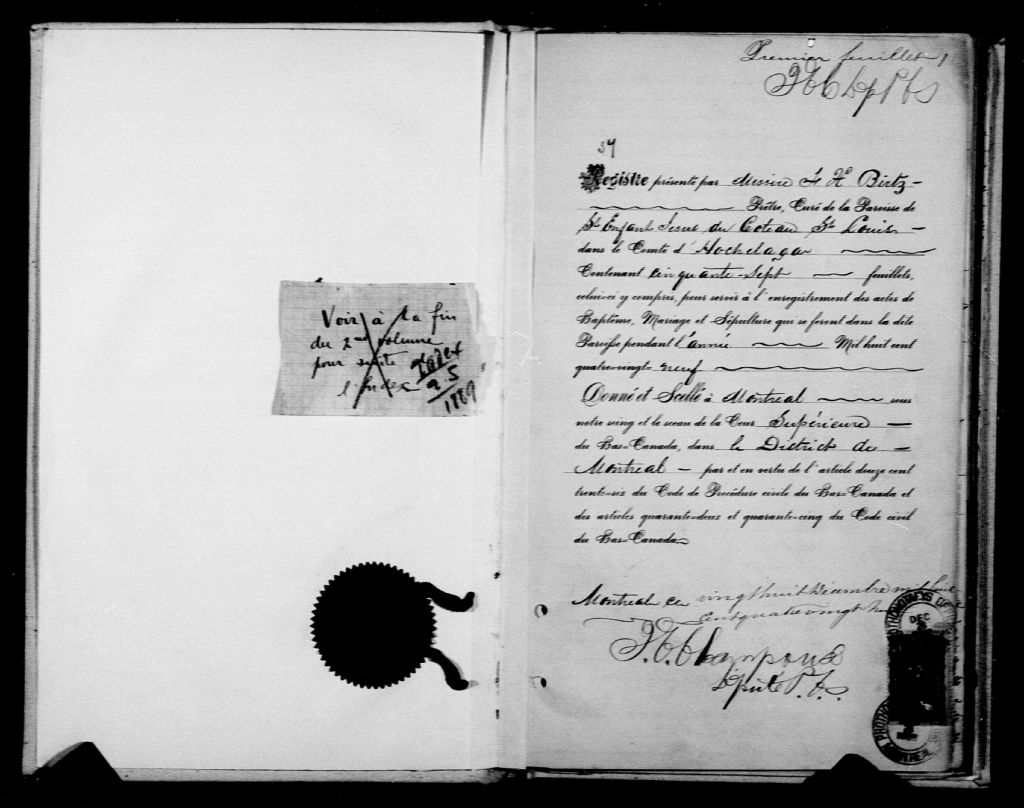 Voir à la fin
du 2nd volume
pour suite
l'Index
1889
Premier feuillet 1
57
Registre présenté par Messire F. A. Birtz
Prêtre, Curé de la Paroisse de
St Enfant Jesus du Coteau St Louis
dans le Comté d'Hochelaga
Contenant cinquante-sept feuillets,
celui-ci y compris, pour servir à l'enregistrement des actes de
Baptême, Mariage et Sépulture qui se feront dans la dite
Paroisse pendant l'année Mil huit cent
quatre-vingt-neuf
Donné et Scellé à Montreal sous
notre seing et le sceau de la Cour Supérieure
du Bas-Canada, dans le District de
Montreal par et en vertu de l'article douze cent
trente-six du Code de Procédure civile du Bas-Canada et
des articles quarante-deux et quarante-cinq du Code civil
du Bas-Canada
Montreal ce vingt huit Décembre mil huit
cent quatre vingt
Député P.C.S.
DEC